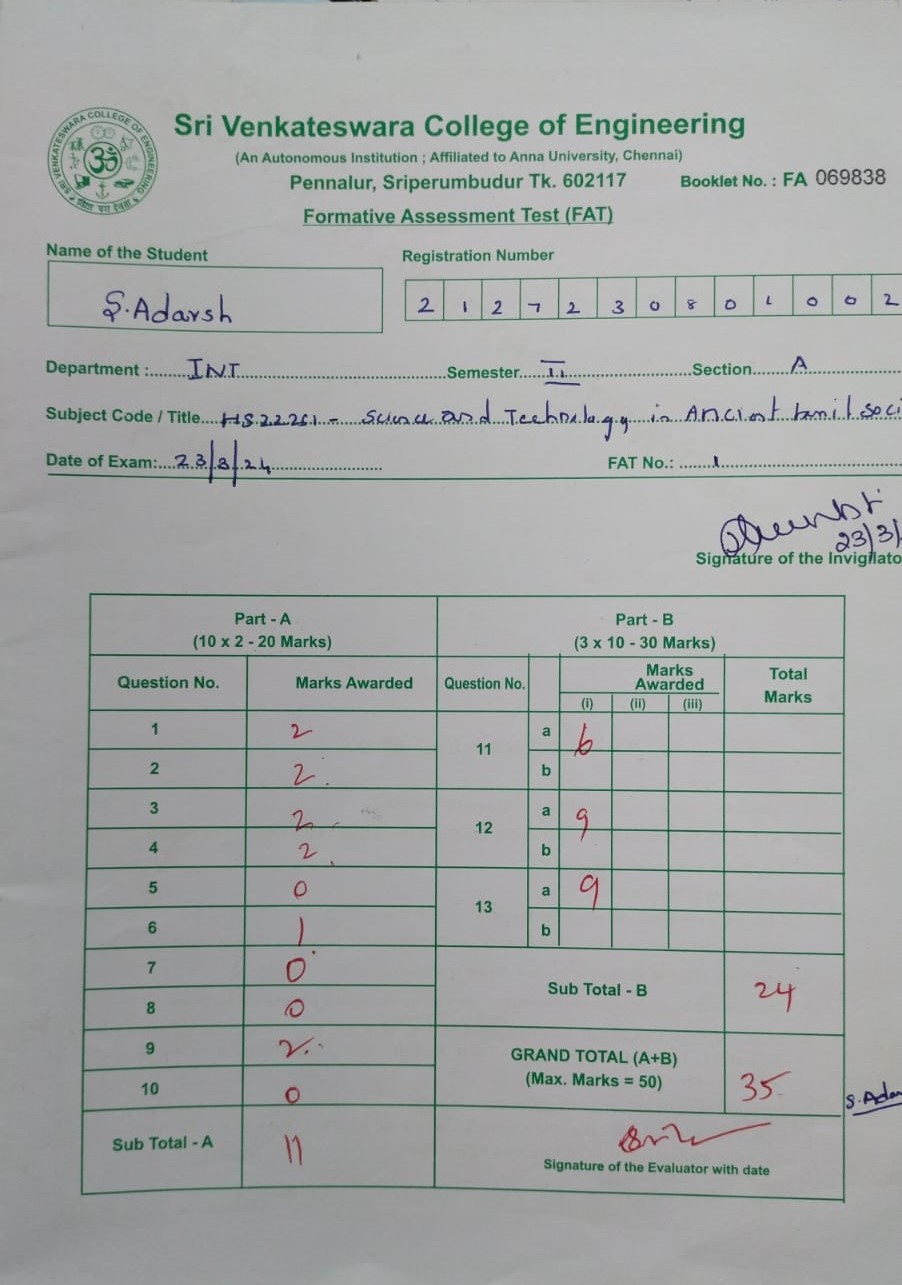 SRI VENKATESWARA COLLEGE OF ENGINEERING
Sri Venkateswara College of Engineering
(An Autonomous Institution ; Affiliated to Anna University, Chennai)
Pennalur, Sriperumbudur Tk. 602117 Booklet No. : FA 069838
Formative Assessment Test (FAT)
Name of the Student Registration Number
S.Adarsh 2 1 2 7 2 3 0 8 0 1 0 0 2
Department : INT Semester II Section A
Subject Code / Title HS22251 - Science and Technology in Ancient tamil soci
Date of Exam: 23/3/24 FAT No.: 1
23/3/
Signature of the Invigilato
Part - A Part - B
(10 x 2 - 20 Marks) (3 x 10 - 30 Marks)
Question No. Marks Awarded Question No. Marks Awarded Total Marks
(i) (ii) (iii)
1 2 11 a 6
2 2 b
3 2 12 a 9
4 2 b
5 0 13 a 9
6 1 b
7 0
8 0 Sub Total - B 24
9 2
10 0 GRAND TOTAL (A+B) (Max. Marks = 50) 35
S.Ada
Sub Total - A 11
Signature of the Evaluator with date